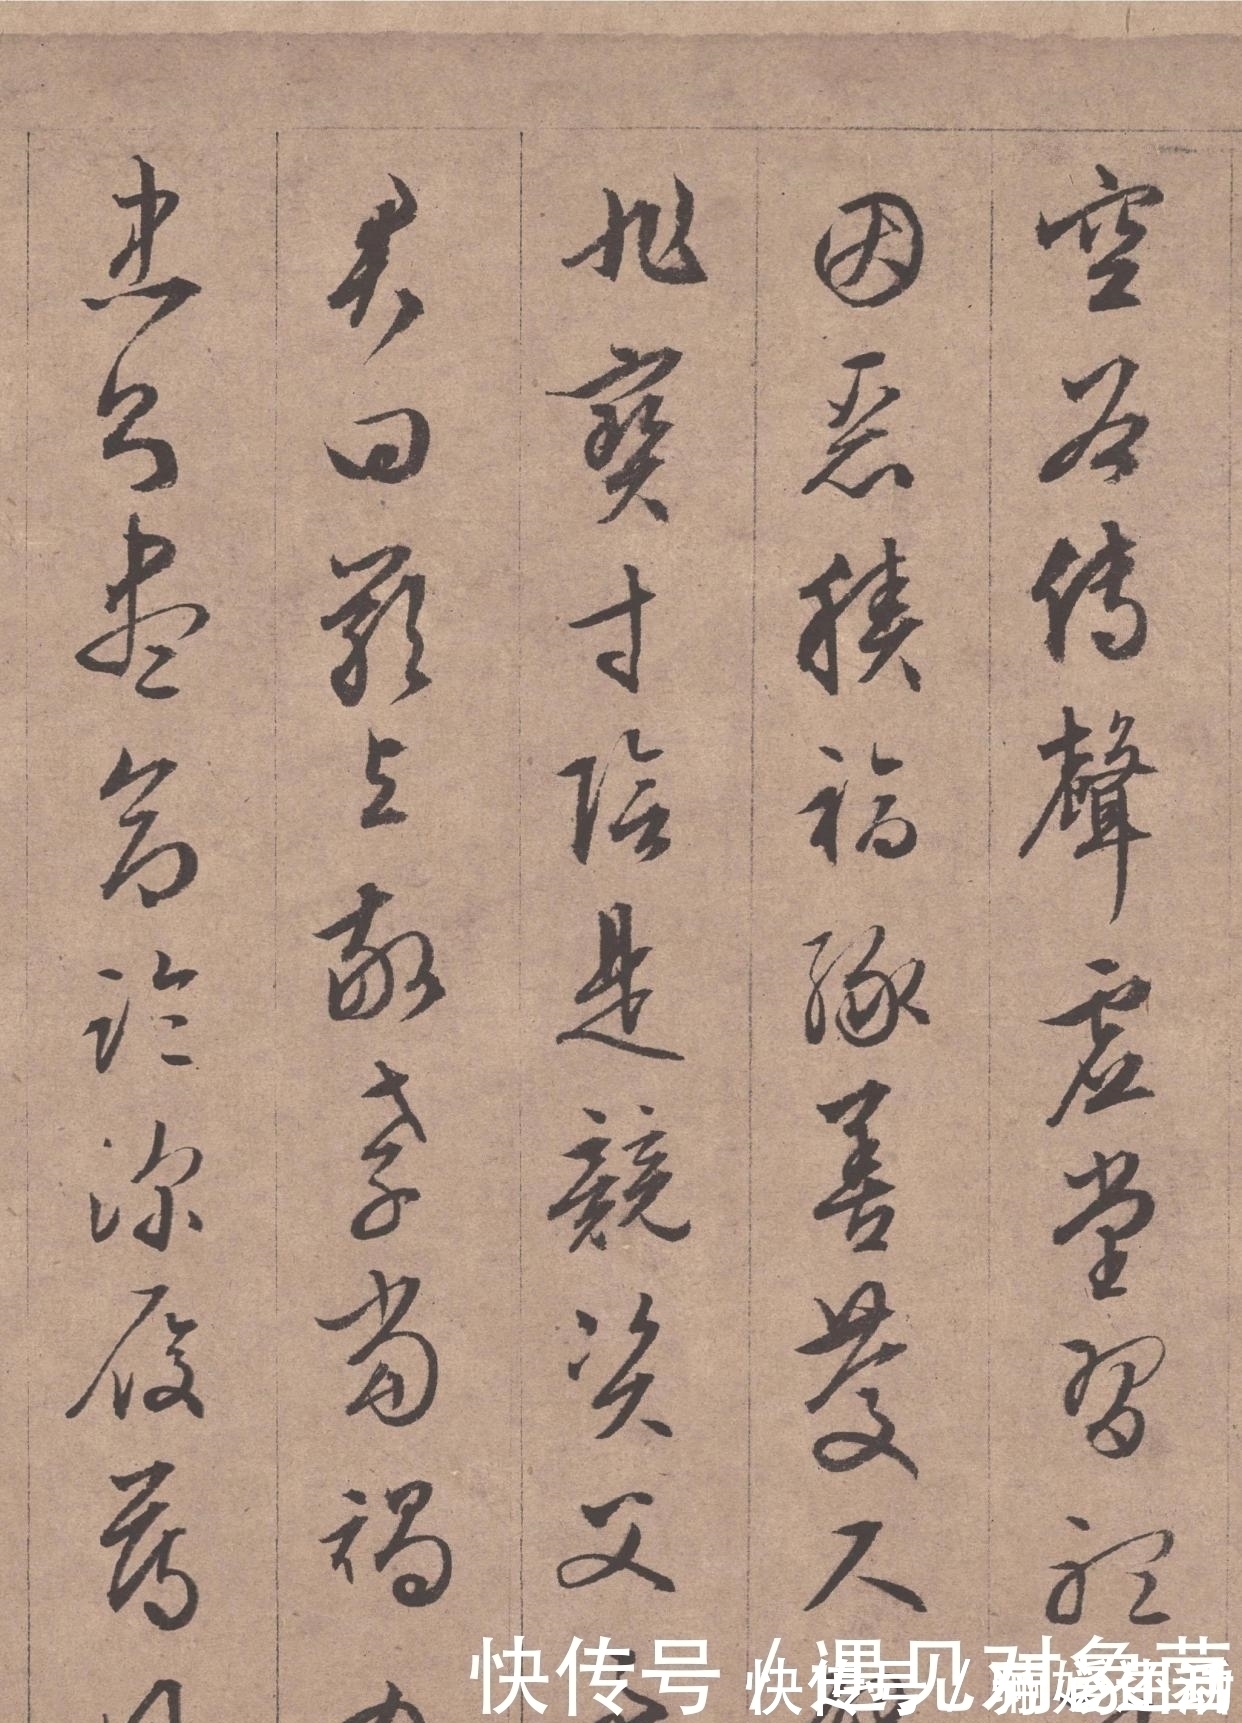 空谷傳聲虛堂習聽
因惡積福緣善慶尺
非寶寸陰是競資父
君曰嚴与敬孝當竭
忠則盡命臨深履薄
快传号 / 遇见对象
快传号 /